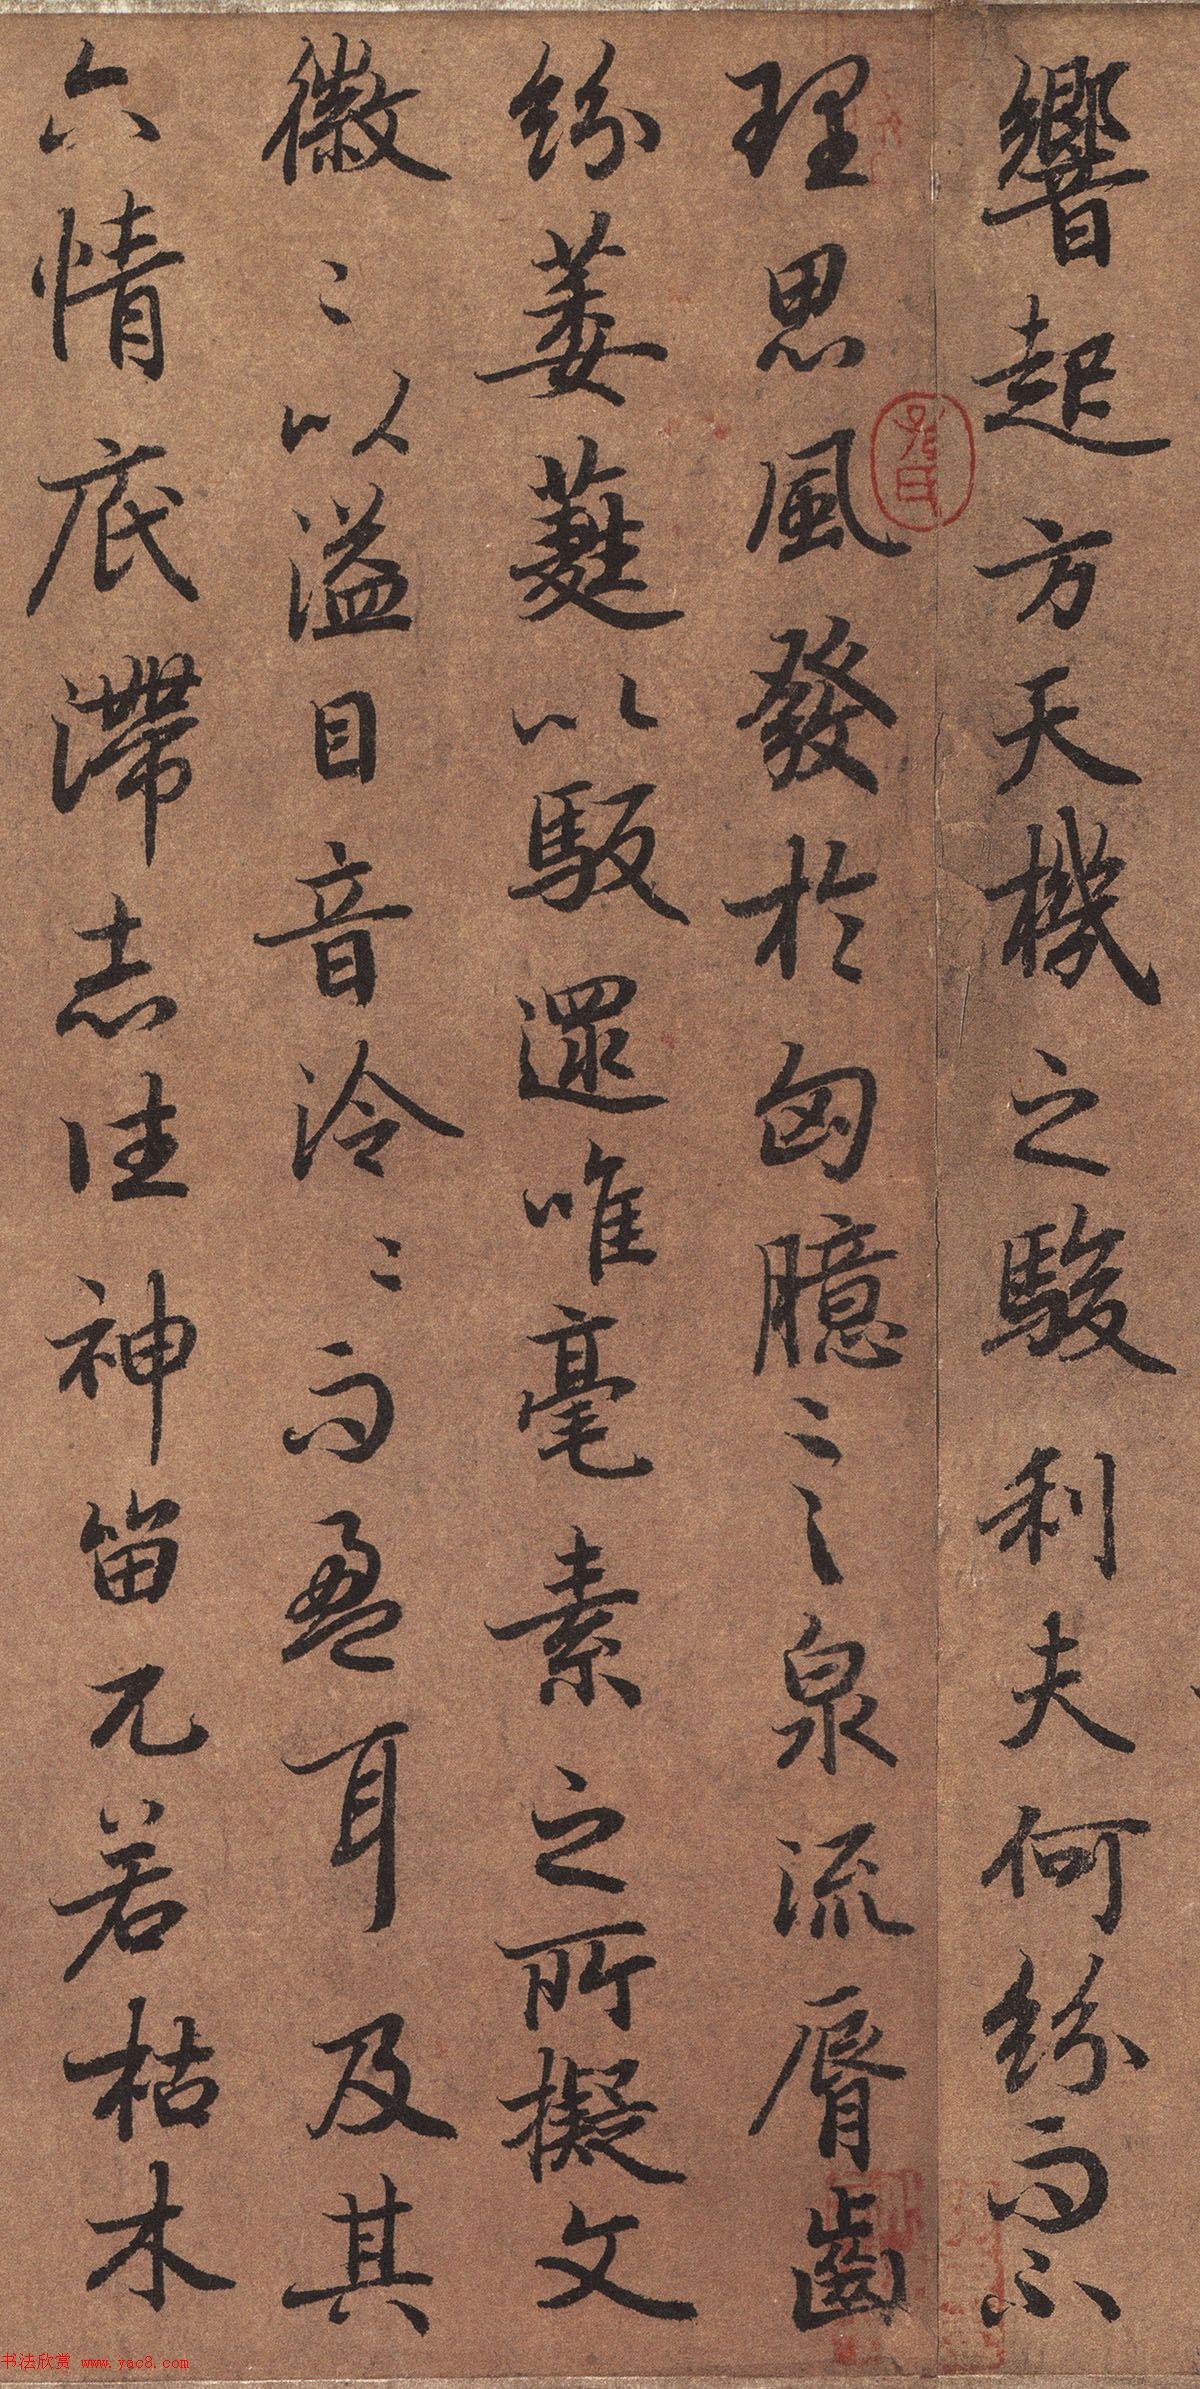 響起方天機之駿利夫何紛而不
理思風發於匈臆〻之泉流脣齒
紛葳蕤以馺遝唯毫素之所擬文
徽〻以溢目音泠〻而盈耳及其
六情底滯志往神留兀若枯木
书法欣赏 www.yac8.com